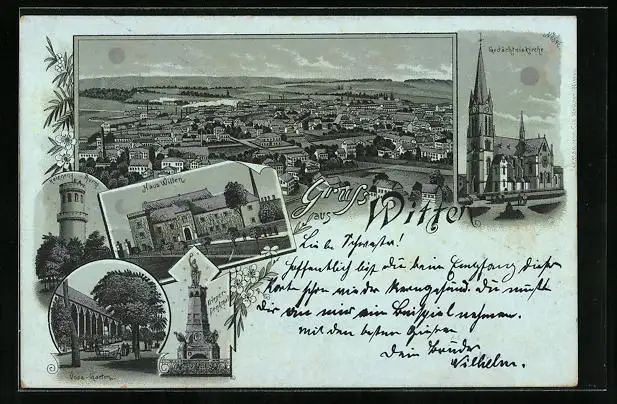 Gedächtniskirche
Haus Witten
Gruss
aus
Witten
Voss-Garten
Liebe Schwester!
Hoffentlich bist du beim Empfang dieser
Karte schon wieder kerngesund. Du musst
dir an mir ein Beispiel nehmen.
Mit den besten Grüssen
Dein Bruder
Wilhelm.